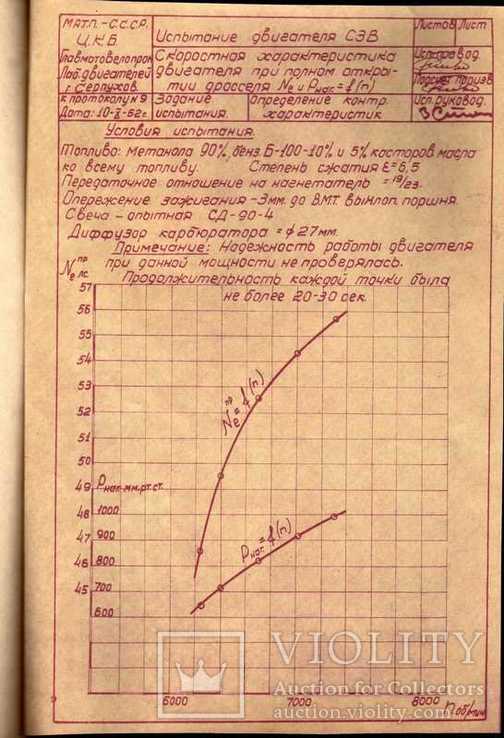 МАТП.-С.С.С.Р.
Ц.К.Б.
Главмотовелопром
Лаб. двигателей
г. Серпухов.
к протоколу N 9
Дата: 10-II-52г.
Испытание двигателя С3В
Скоростная характеристика
двигателя при полном откры-
тии дросселя Nе и Рнаг.=f(n)
Задание
испытания.
Определение контр.
характеристик
Листов Лист
Исп. провод.
Исп. руковод.
Условия испытания.
Топливо: метанола 90%, бенз. Б-100-10% и 5% касторов. масла
ко всему топливу. Степень сжатия ε=6,5
Передаточное отношение на нагнетатель = 19/23.
Опережение зажигания -3мм. до В.М.Т. выхлоп. поршня.
Свеча - опытная СД-90-4
Диффузор карбюратора = ф 27мм.
Примечание: Надежность работы двигателя
при данной мощности не проверялась.
Продолжительность каждой точки была
не более 20-30 сек.
Nе пр л.с.
57
56
55
54
53
52
51
50
49 Рнаг. мм. рт. ст.
48 1000
47 900
46 800
45 700
600
Nе пр = f(n)
Рнаг. = f(n)
6000 7000 8000 n об/мин
VIOLITY
Auction for Collectors
auction.violity.com